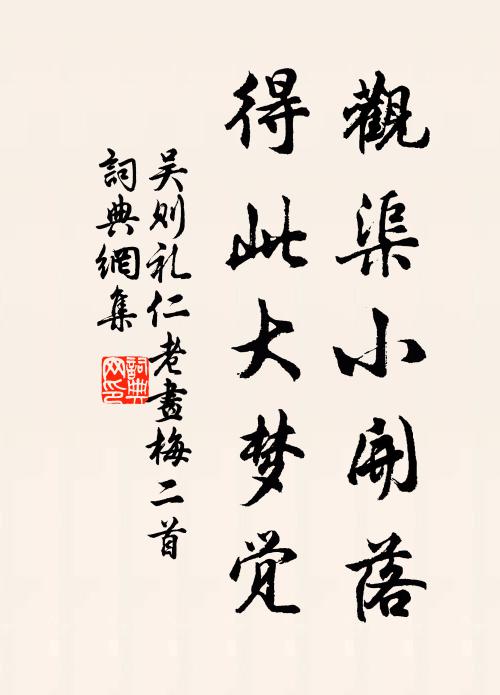 觀渠小開落
得此大梦觉
吴则礼仁老畫梅二首
詞典網集
詞典网印